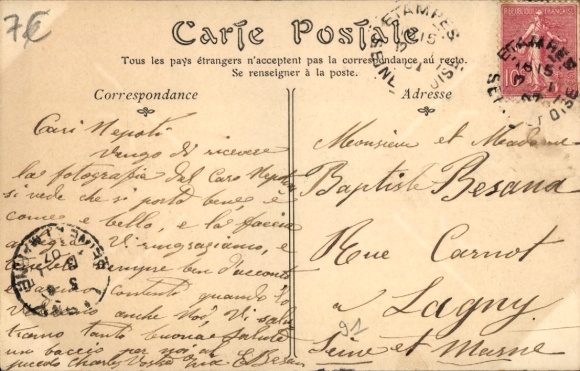 7€
Carte Postale
Tous les pays étrangers n'acceptent pas la correspondance au recto.
Se renseigner à la poste.
Correspondance
Adresse
ETAMPES
SEINE
OISE
RÉPUBLIQUE FRANÇAISE
10
ETAMPES
OISE
Cari Nepoti
Vengo di ricevere
la fotografia del Caro
si vede che si porta bene e
come e bello, e la faccia
allegra. Vi ringraziamo, e
sempre ben
contento quando lo
anche Noi, Vi
tanto buona salute
un baccio per noi al
piccolo Charly Vostra
Monsieur et Madame
Baptiste Besana
Rue Carnot
à Lagny
Seine et Marne
91
SEINE ET MARNE
07